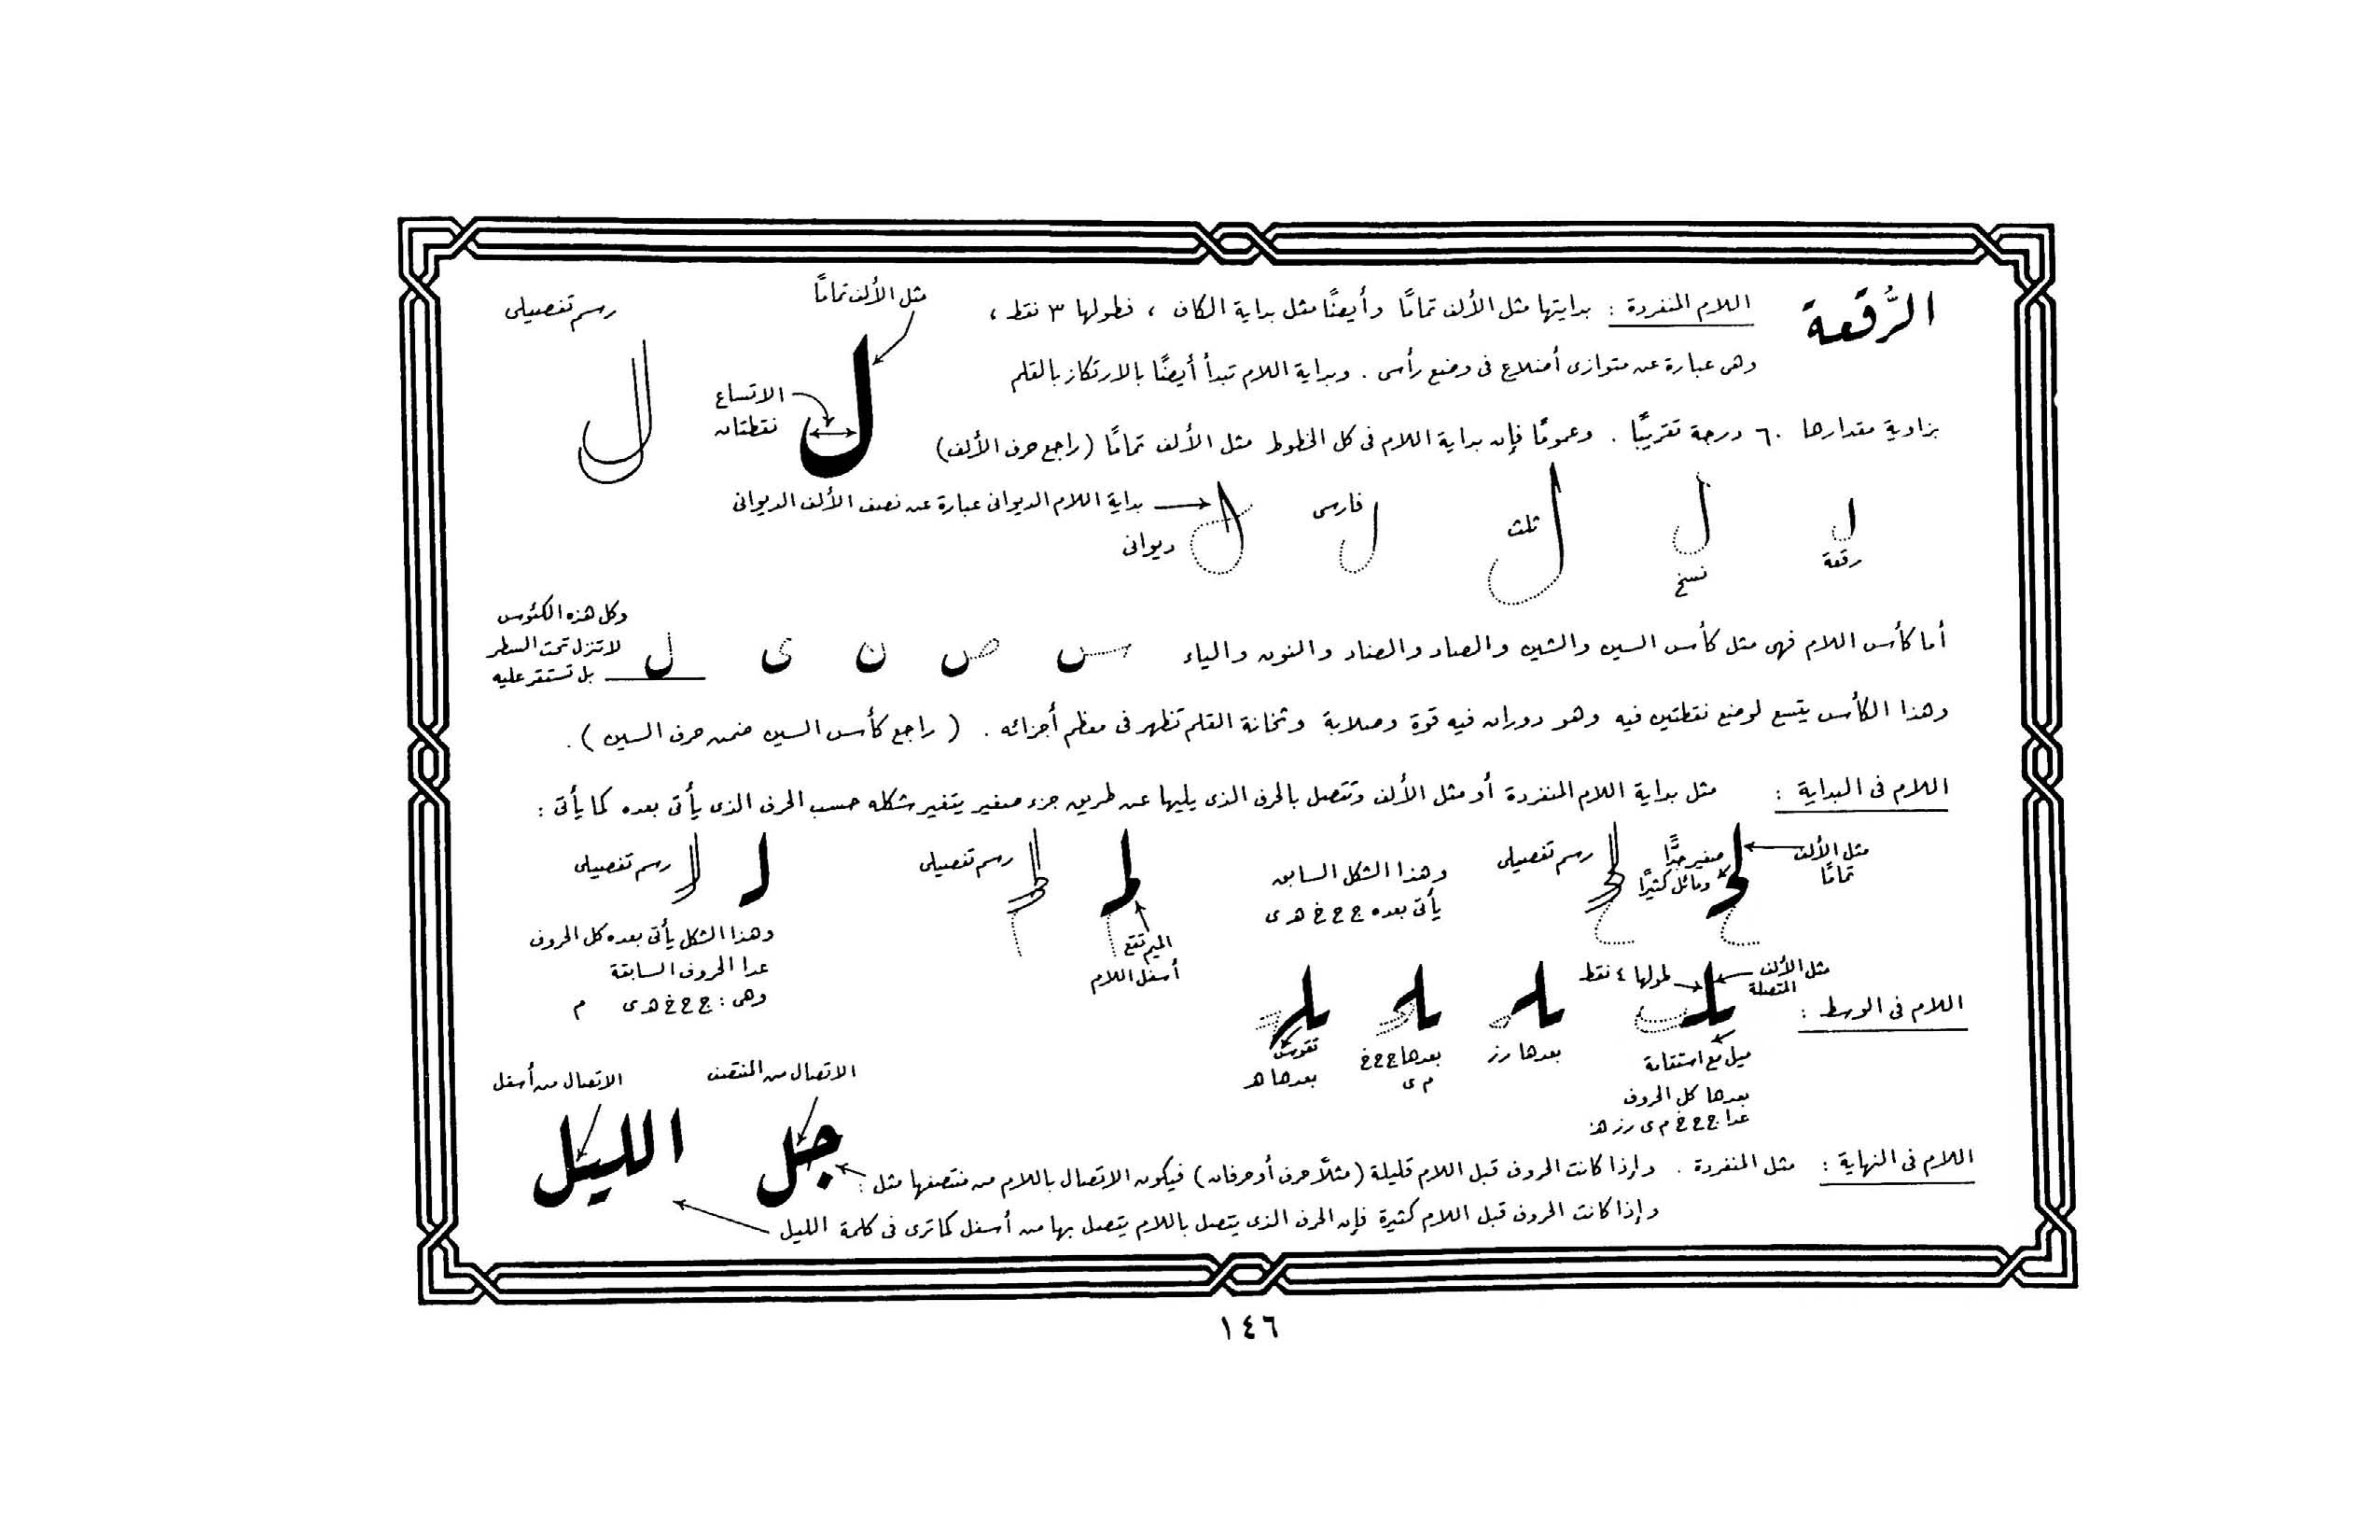 الرُّقعة
اللام المنفردة : بدايتها مثل الألف تمامًا وأيضًا مثل بداية الكاف ، فطولها ٣ نقط ،
وهى عبارة عن متوازى أضلاع فى وضع رأسى . وبداية اللام تبدأ أيضًا بالارتكاز بالقلم
بزاوية مقدارها ٦٠ درجة تقريبًا . وعمومًا فإن بداية اللام فى كل الخطوط مثل الألف تمامًا (راجع حرف الألف)
مثل الألف تمامًا
ل
الاتساع
نقطتان
رسم تفصيلى
ل
ل رقعة
ل نسخ
ل ثلث
ل فارسى
ل ديوانى
بداية اللام الديوانى عبارة عن نصف الألف الديوانى
أما كأس اللام فهى مثل كأس السين والشين والصاد والضاد والنون والياء
س ص ن ى ل
وكل هذه الكئوس
لا تنزل تحت السطر
بل تستقر عليه
وهذا الكأس يتسع لوضع نقطتين فيه وهو دوران فيه قوة وصلابة وثخانة القلم تظهر فى معظم أجزائه . ( راجع كأس السين ضمن حرف السين ) .
اللام فى البداية : مثل بداية اللام المنفردة أو مثل الألف وتتصل بالحرف الذى يليها عن طريق جزء صغير يتغير شكله حسب الحرف الذى يأتى بعده كما يأتى :
مثل الألف
تمامًا
صغير جدًّا
ومائل كثيرًا
رسم تفصيلى
وهذا الشكل السابق
يأتى بعده ج ح خ هـ ى
الميم تقع
أسفل اللام
رسم تفصيلى
رسم تفصيلى
وهذا الشكل يأتى بعده كل الحروف
عدا الحروف السابقة
وهى : ج ح خ هـ ى م
اللام فى الوسط :
مثل الألف
المتصلة
طولها ٤ نقط
ميل مع استقامة
بعدها كل الحروف
عدا ج ح خ م ى ر ز هـ
بعدها ر ز
بعدها ج ح خ
م ى
تقوس
بعدها هـ
اللام فى النهاية : مثل المنفردة . وإذا كانت الحروف قبل اللام قليلة (مثلًا حرف أو حرفان) فيكون الاتصال باللام من منتصفها مثل :
وإذا كانت الحروف قبل اللام كثيرة فإن الحرف الذى يتصل باللام يتصل بها من أسفل كما ترى فى كلمة الليل
الاتصال من المنتصف
جل
الاتصال من أسفل
الليل
١٤٦